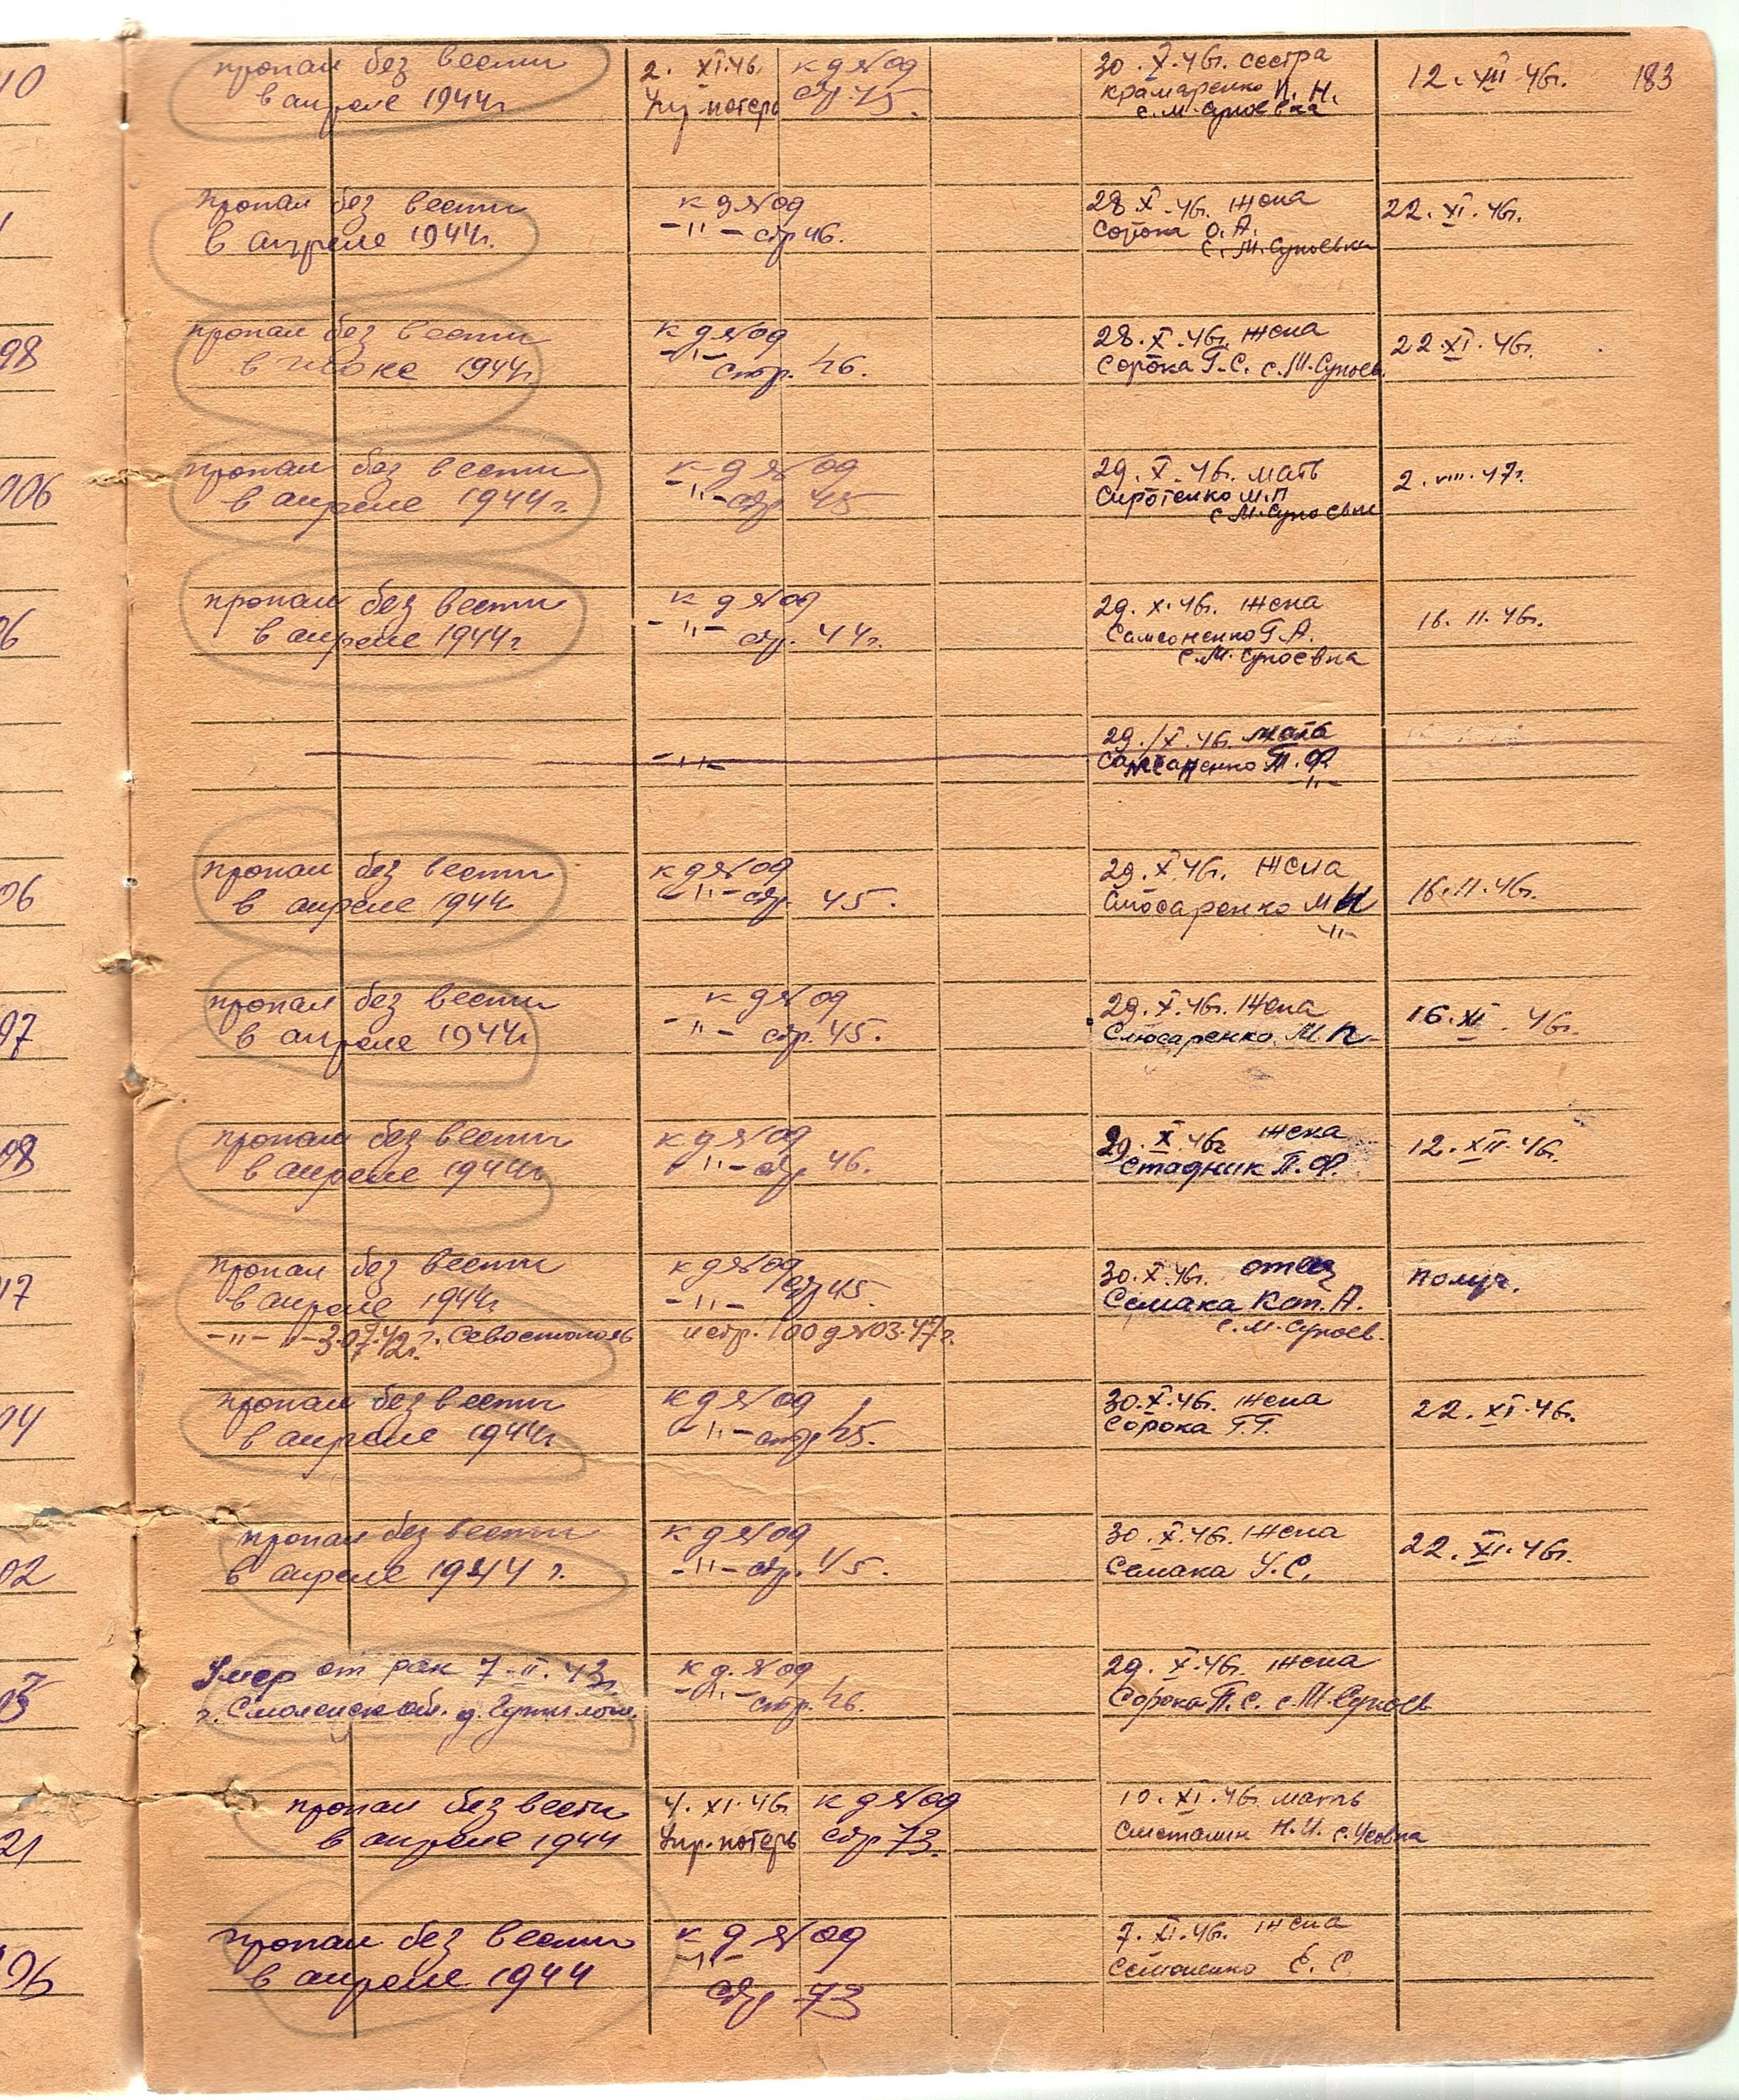 10 пропал без вести 2. XI.46. к д № 09 30.X.46г. сестра 12.XII.46г. 183
в апреле 1944г Упр. потерь стр. 45. Крамаренко Н.
с. М. Супоевка
пропал без вести к д № 09 28.X.46г. жена 22.XI.46г.
в апреле 1944г. -"- стр 46. Сорока О.А.
с. М. Супоевка
98 пропал без вести к д № 09 28.X.46г. жена 22.XI.46г.
в 1944г -"- стр. 46. Сорока Г.С. с. М. Супоев.
006 пропал без вести к д № 09 29.X.46г. мать 2.VIII.47г.
в апреле 1944г. -"- стр 45 Сиротенко М.П
с. М. Супоевка
06 пропал без вести к д № 09 29.X.46г. жена 16.11.46г.
в апреле 1944г -"- стр. 44г. Самсоненко Г.А.
с. М. Супоевка
29./X.46г.
-"- Самсоненко П.Ф.
-"-
06 пропал без вести к д № 09 29.X.46г. жена 16.11.46г.
в апреле 1944г -"- стр. 45. Слюсаренко М
-"-
07 пропал без вести к д № 09 29.X.46г. жена 16.XI.46г.
в апреле 1944г -"- стр. 45. Слюсаренко М.
08 пропал без вести к д № 09 29.X.46г жена 12.XII.46г.
в апреле 1944г -"- стр 46. Стадник П.Ф.
17 пропал без вести к д № 09 30.X.46г. отец получ.
в апреле 1944г -"- стр 45. Семака Кон. А.
-"- -"- 3.07.42г. Севастополь испр. 100 д № 03.47г. с. М. Супоев.
04 пропал без вести к д № 09 30.X.46г. жена 22.XI.46г.
в апреле 1944г. -"- стр 45. Сорока Г.Г.
02 пропал без вести к д № 09 30.X.46г. жена 22.XI.46г.
в апреле 1944 г. -"- стр. 45. Семака У.С.
Умер от ран 7-II.43г. к д. № 09 29.X.46г. жена
г. Смоленск обл. д. -"- стр. 46. Сорока П.С. с. М. Супоев
21 пропал без вести 4.XI.46г. к д № 09 10.XI.46г. мать
в апреле 1944 Упр. потерь стр 73. Сметанин Н.И. с. Усовка
06 пропал без вести к д № 09 7.XI.46г. жена
в апреле 1944 -"- Е.С.
стр 73